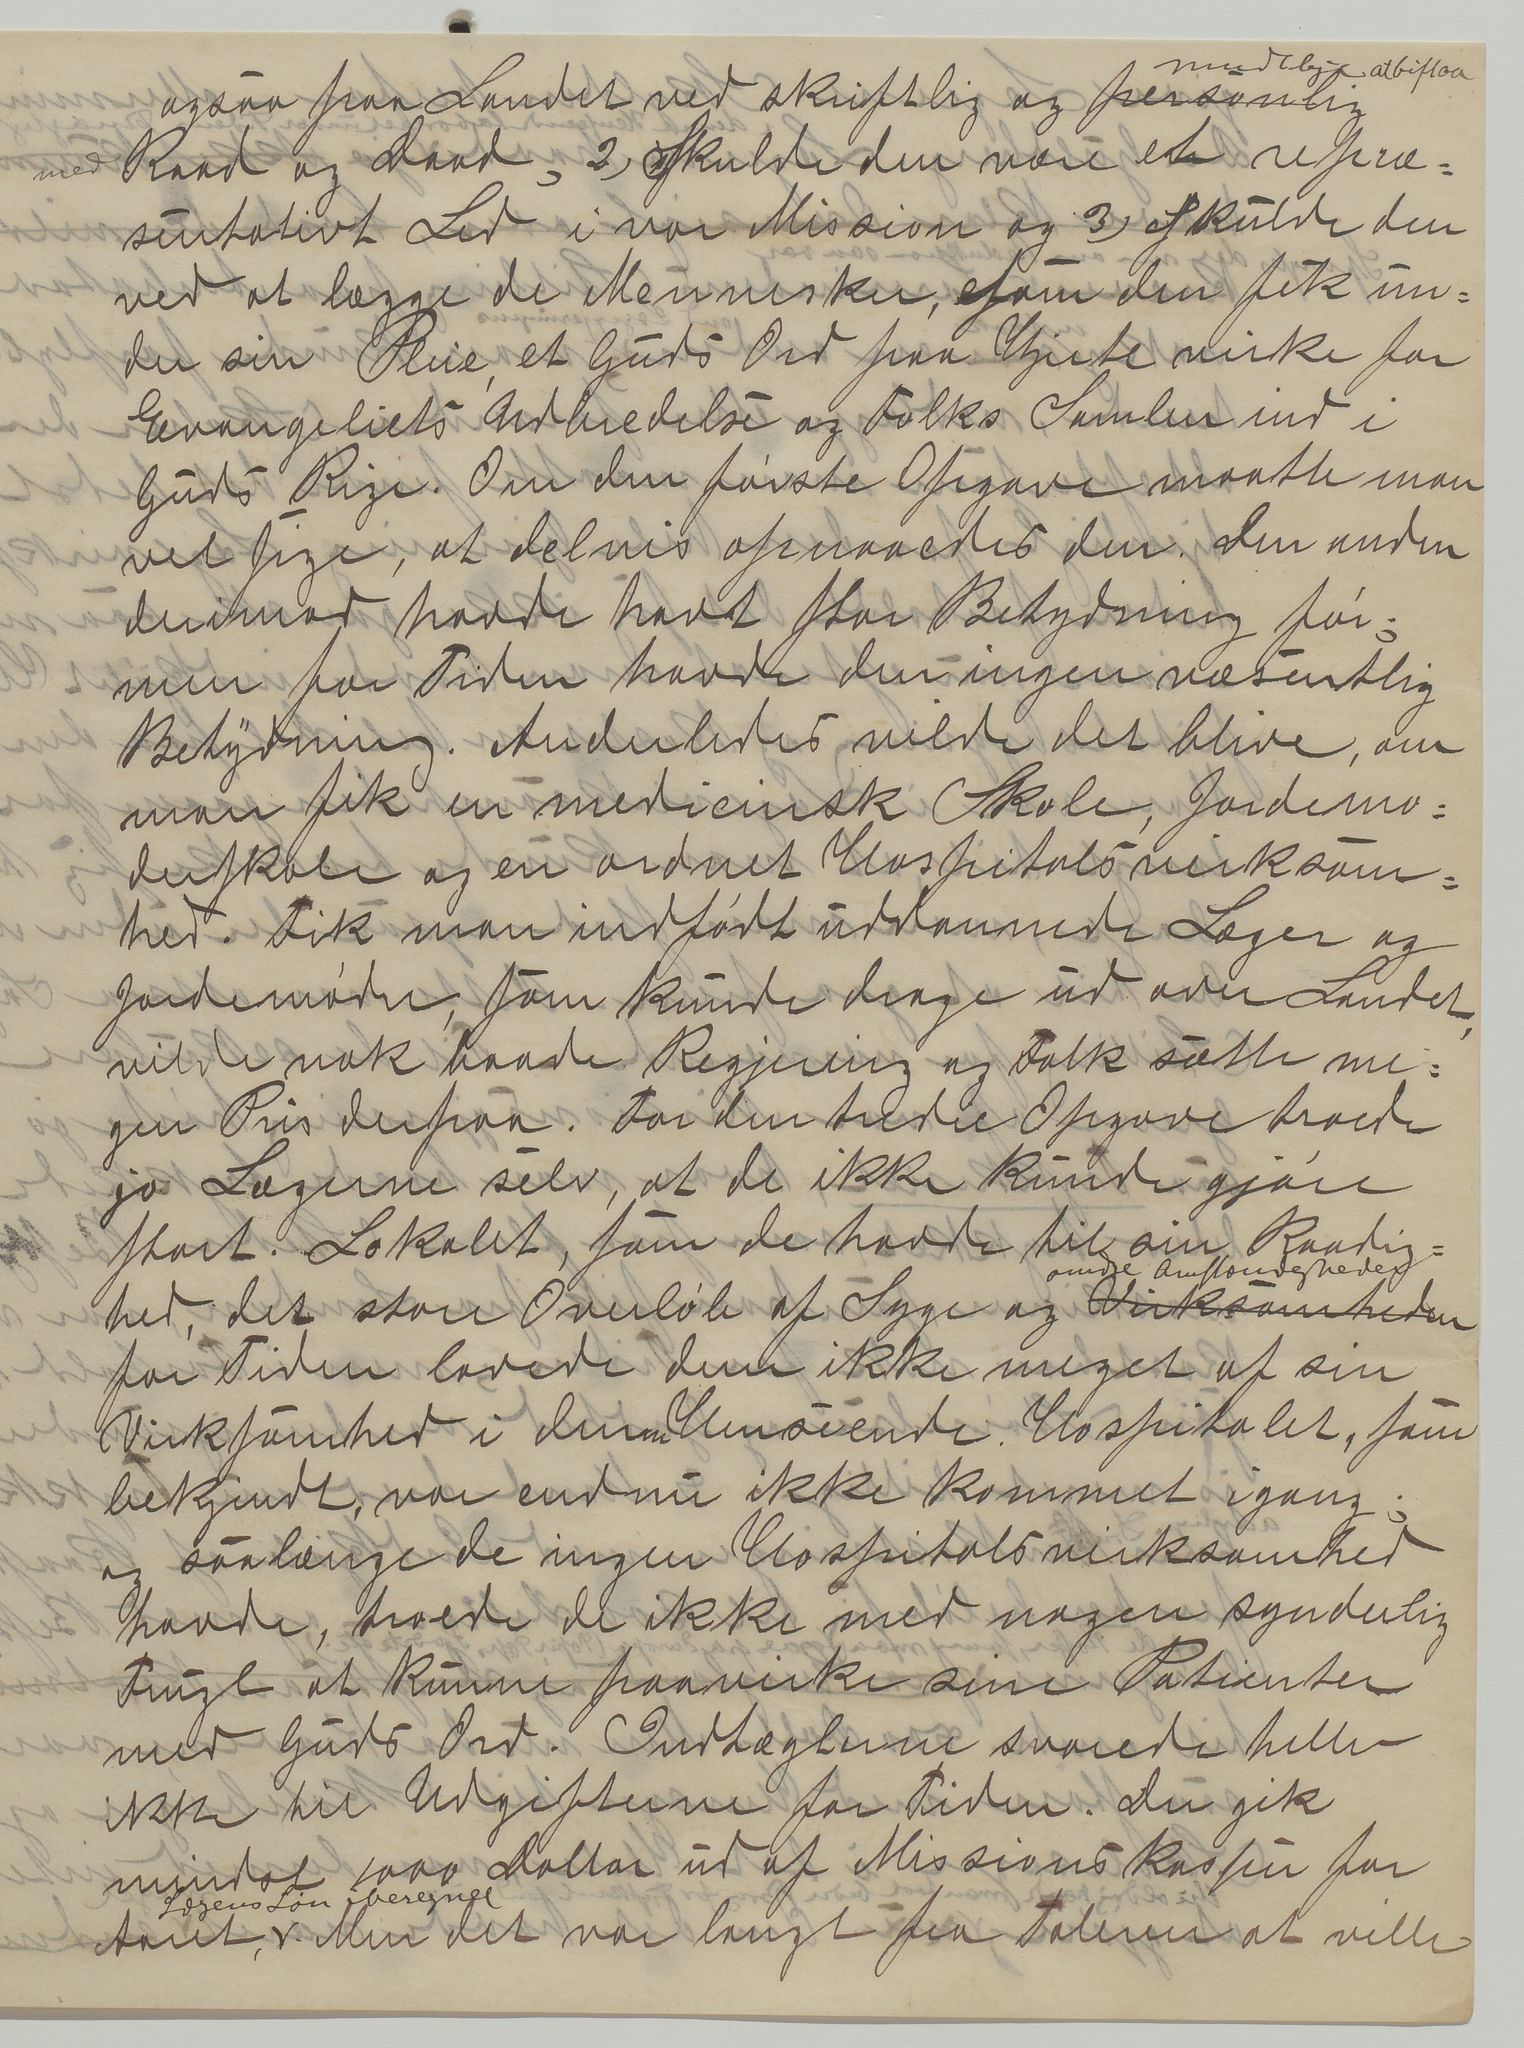 mundtlig at bistaa
ogsaa paa Landet ved skriftlig og personlig
med Raad og Daad, 2, Skulde den være et repræ=
sentativt Led i vor Mission og 3, Skulde den
ved at lægge de Mennesker, som den fik un=
der sin Pleie, et Guds Ord paa Hjerte virke for
Evangeliets Udbredelse og Folks Samlen ind i
Guds Rige. Om den første Opgave maatte man
vel sige, at delvis opnaaedes den. Den anden
derimod havde havt stor Betydning før;
men for Tiden havde den ingen væsentlig
Betydning. Anderledes vilde det blive, om
man fik en medicinsk Skole, Jordemo=
derskole og en ordnet Hospitalsvirksom=
hed. Fik man indfødt uddannede Læger og
Jordemødre, som kunde drage ud over Landet,
vilde nok baade Regjering og Folk sætte me=
gen Pris derpaa. For den tredie Opgave troede
jo Lægerne selv, at de ikke kunde gjøre
stort. Lokalet, som de havde til sin Raadig=
andre Omstændigheder
hed, det store Overløb af Syge og Virksomheden
for Tiden lovede dem ikke meget af sin
Virksomhed i den Henseende. Hospitalet, som
bekjendt, var endnu ikke kommet igang;
og saalænge de ingen Hospitalsvirksomhed
havde, troede de ikke med nogen synderlig
Frugt at kunne paavirke sine Patienter
med Guds Ord. Indtægterne svarede heller
ikke til Udgifterne for Tiden. Der gik
mindst 1000 Dollar ud af Missionskassen for
Lægens Løn iberegnet
Aaret, v. Men det var langt fra Taleren at ville